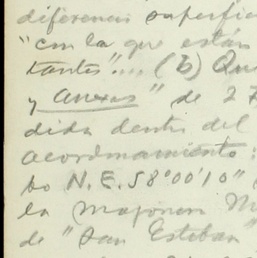 diferencia superfic
"con la que están
tantes".... (B) Que
y Anexas" de 27
dida dentro del
acordonamiento:
bo N.E.58°00'10"
la Mojonera M
de "San Esteban"